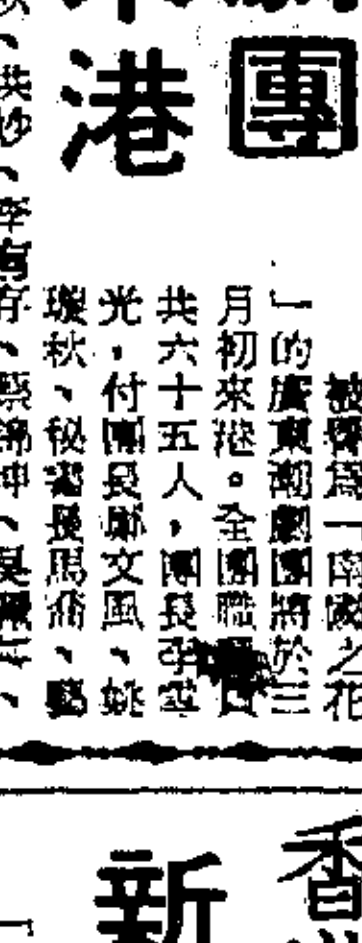 團
港
被譽爲「南國之花
」的廣東潮劇團將於三
月初來港。全團職
共六十五人,團長李雪
光,付團長鄭文風、姚
璇秋、秘書長馬喬、
、洪妙、李有存、蔡錦坤、吳
香
新